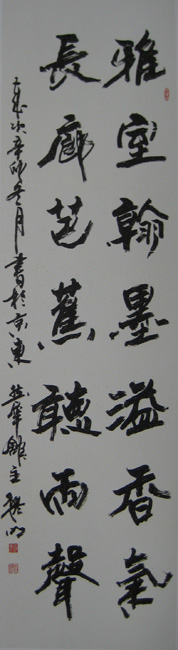 雅室翰墨溢香氣
長廊芭蕉聽雨聲
歲次辛卯冬月書於京東